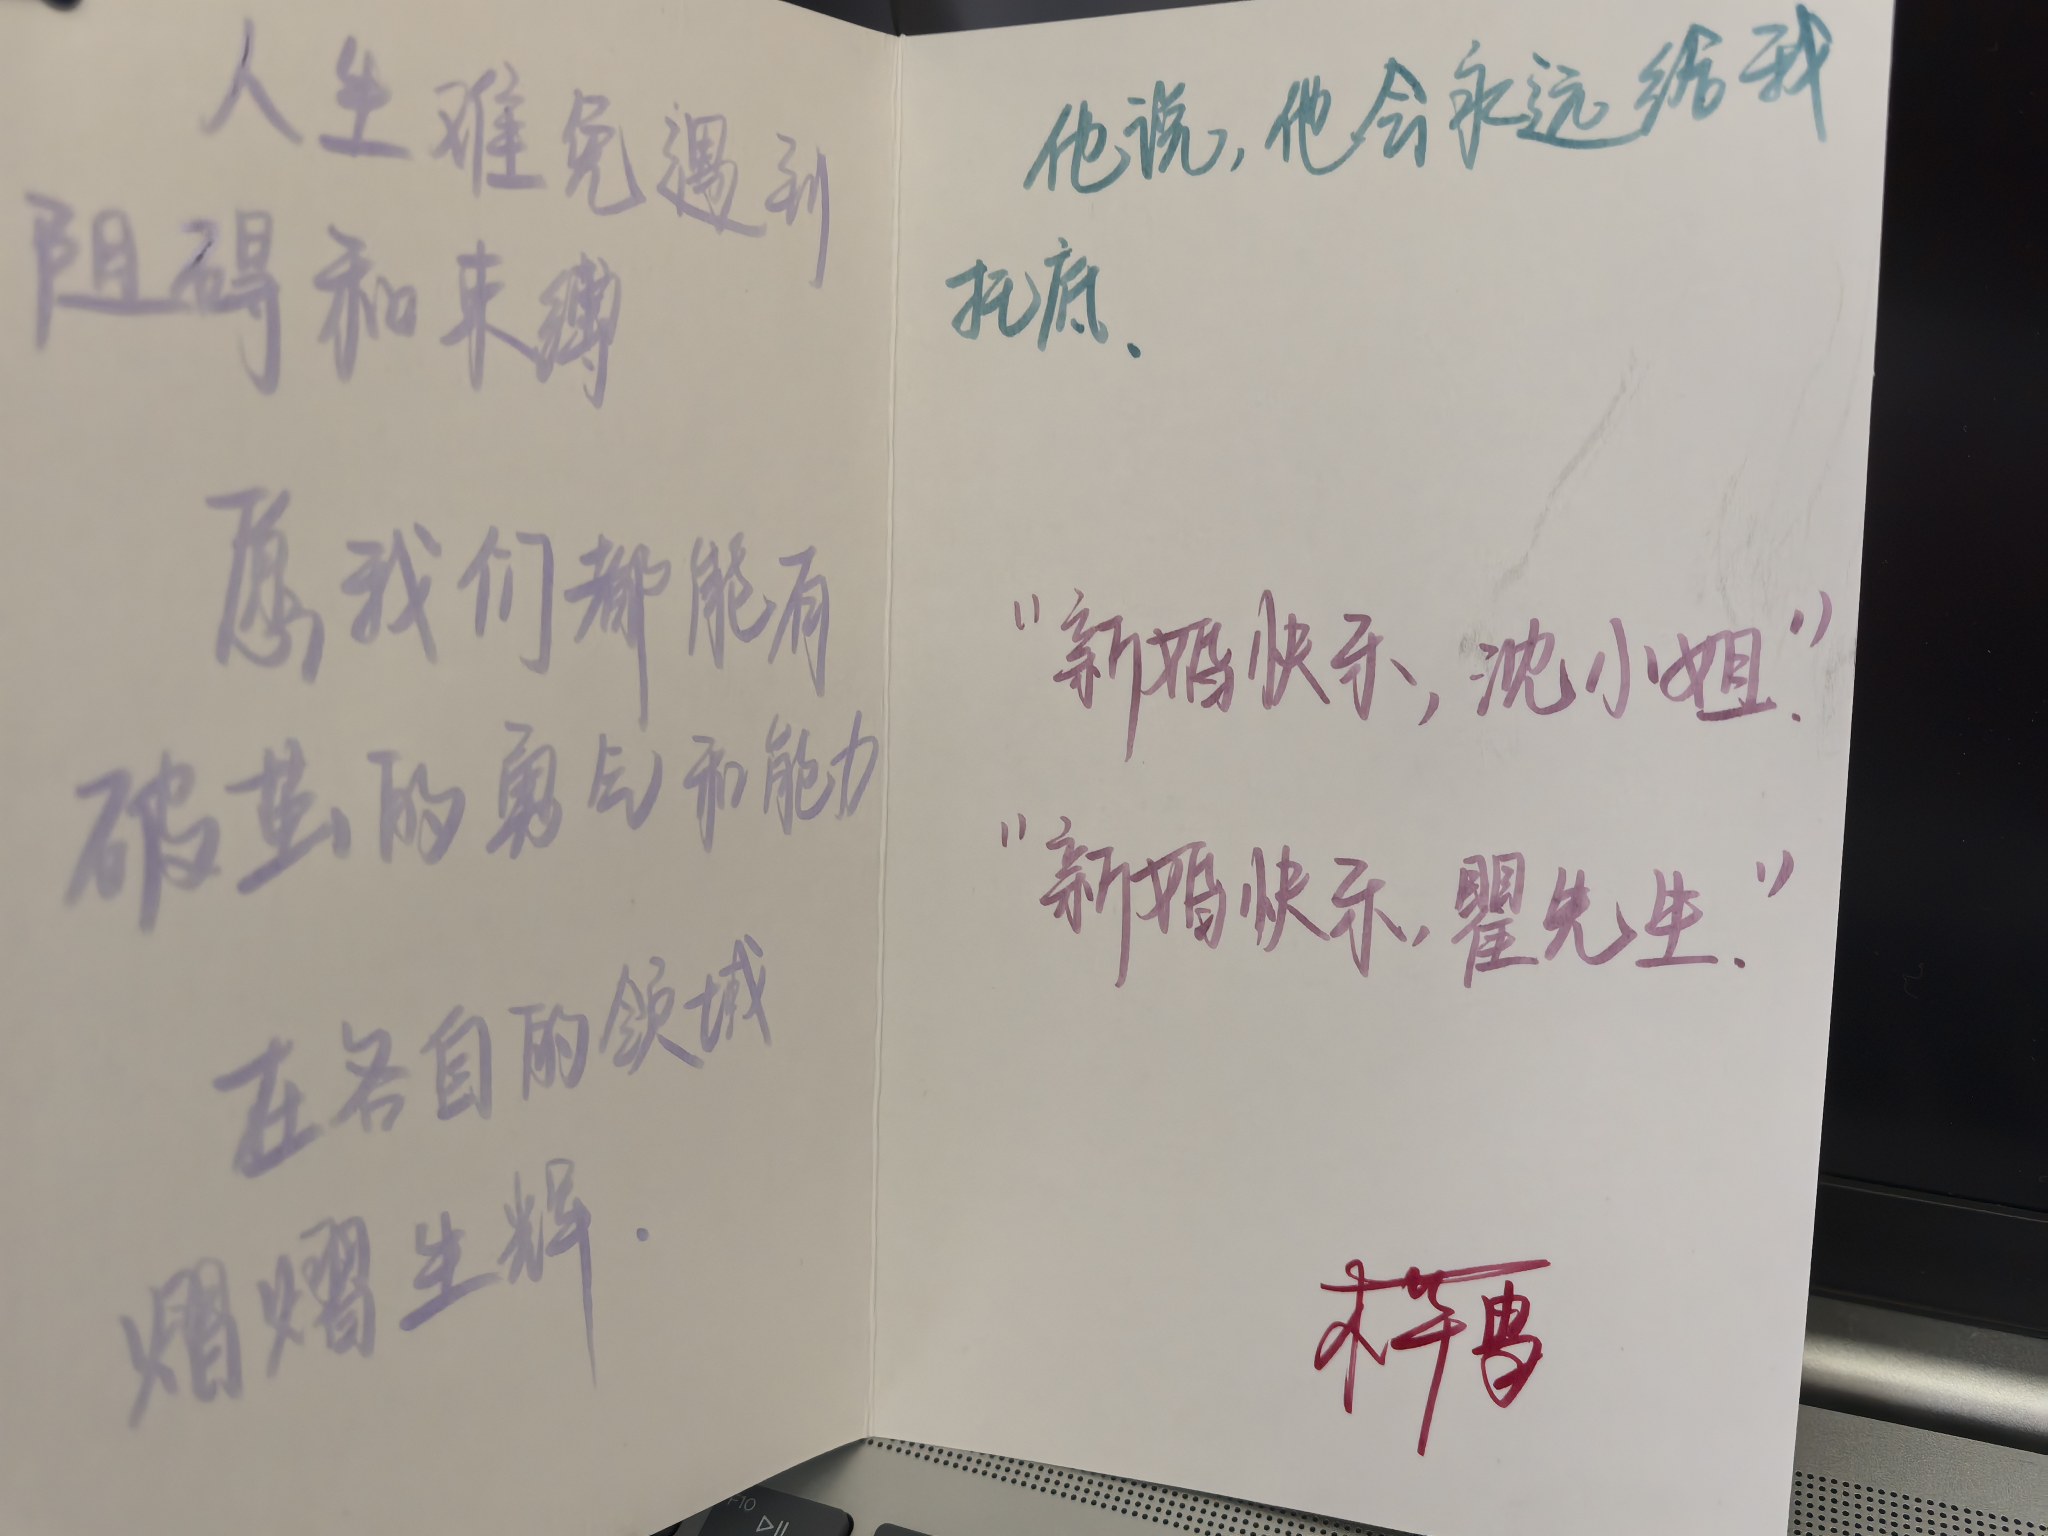 人生难免遇到
阻碍和束缚
愿我们都能有
破茧的勇气和能力
在各自的领域
熠熠生辉.
他说,他会永远给我
托底.
"新婚快乐,沈小姐."
"新婚快乐,瞿先生."
F10